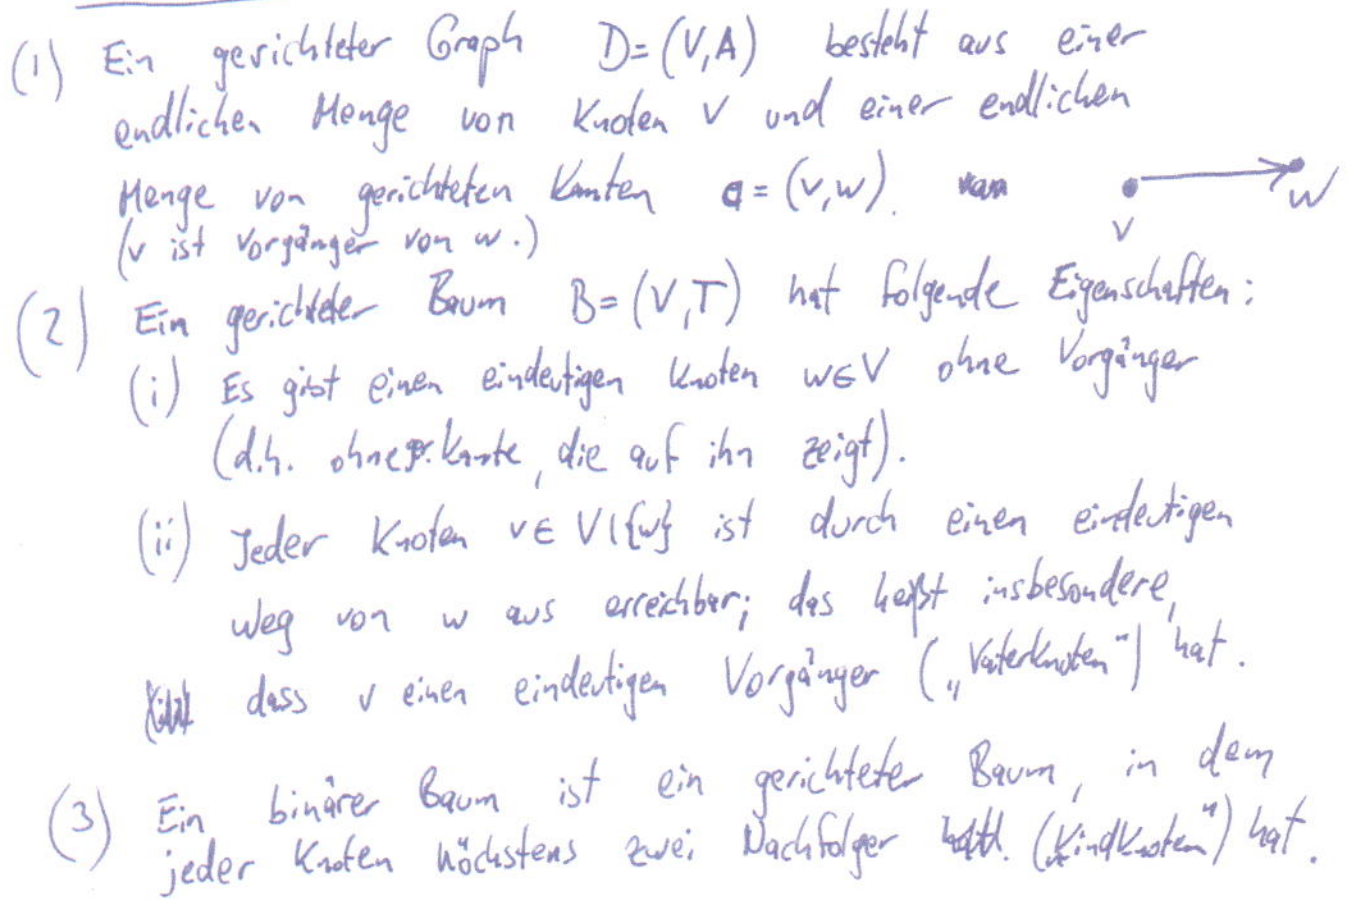 (1) Ein gerichteter Graph D=(V,A) besteht aus einer
endlichen Menge von Knoten V und einer endlichen
Menge von gerichteten Kanten a=(v,w).
v w
(v ist Vorgänger von w.)
(2) Ein gerichteter Baum B=(V,T) hat folgende Eigenschaften:
(i) Es gibt einen eindeutigen Knoten w∈V ohne Vorgänger
(d.h. ohne Kante, die auf ihn zeigt).
(ii) Jeder Knoten v∈V\{w} ist durch einen eindeutigen
Weg von w aus erreichbar; das heißt insbesondere,
dass v einen eindeutigen Vorgänger („Vaterknoten") hat.
(3) Ein binärer Baum ist ein gerichteter Baum, in dem
jeder Knoten höchstens zwei Nachfolger („Kindknoten") hat.